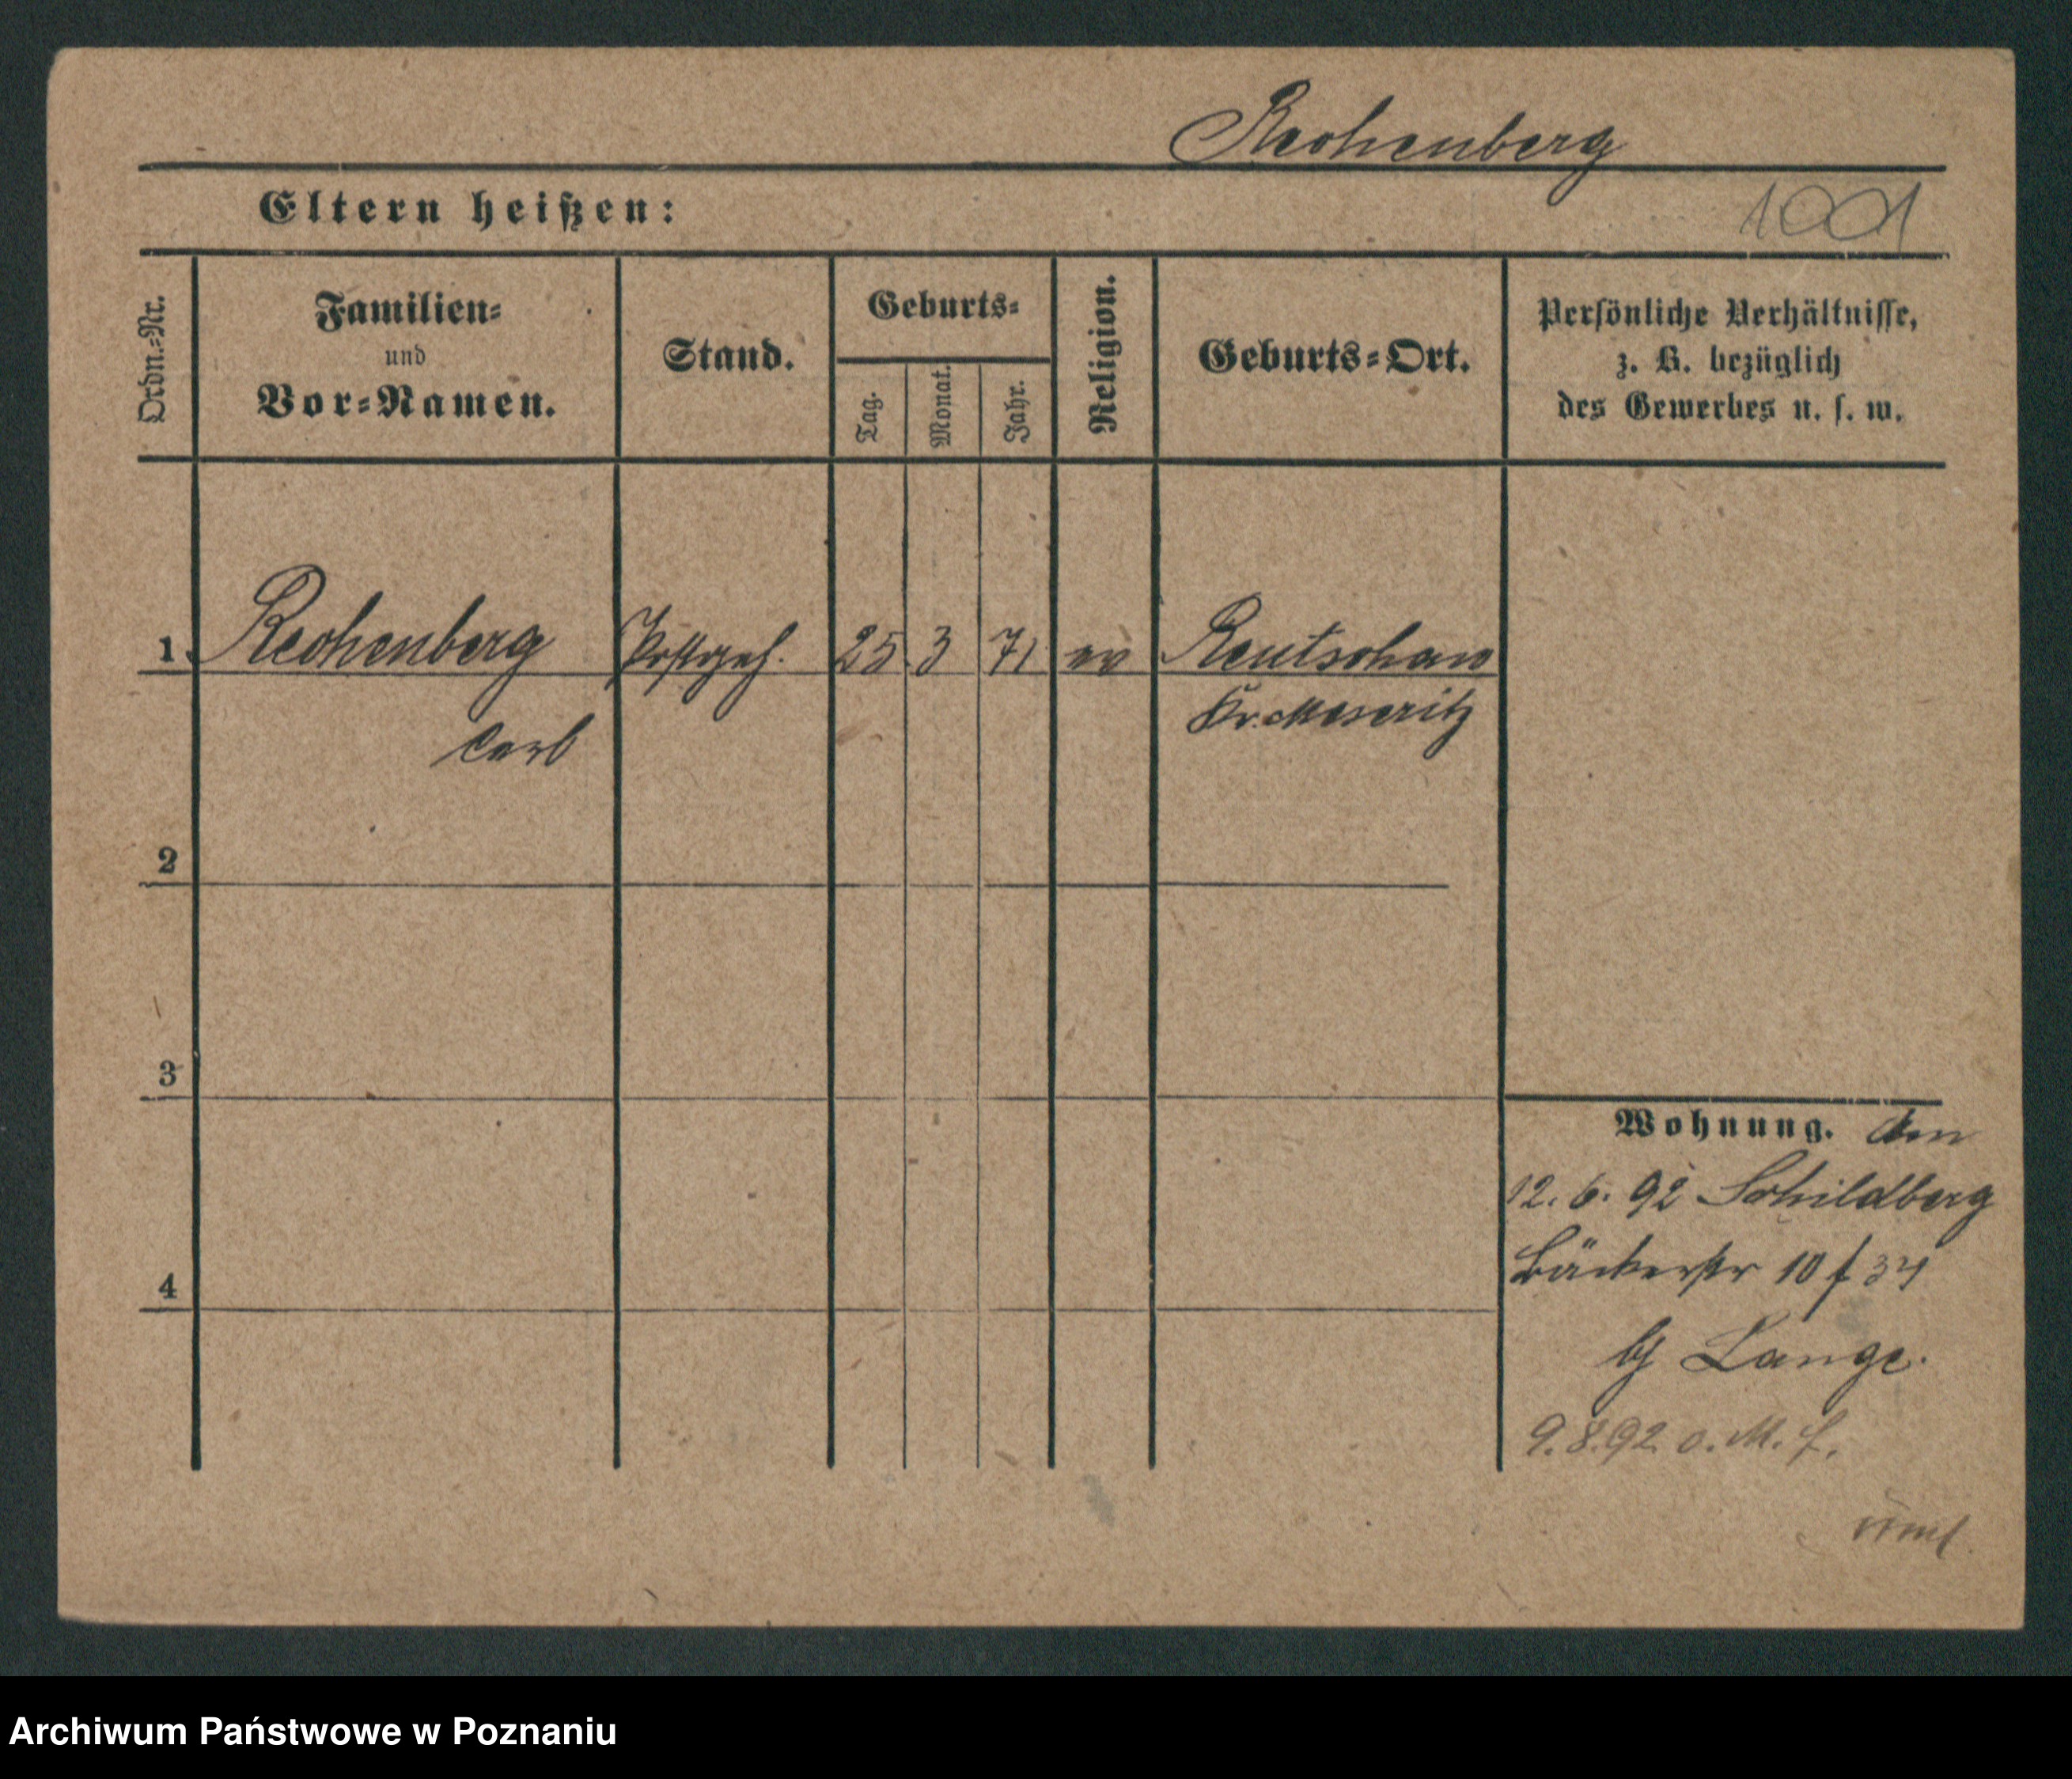 Rechenberg
Eltern heißen:
1001
Ordn.-Nr.
Familien-
und
Vor-Namen.
Stand.
Geburts-
Tag.
Monat.
Jahr.
Religion.
Geburts-Ort.
Persönliche Verhältnisse,
z. B. bezüglich
des Gewerbes u. s. w.
1 Rechenberg Postgeh. 25 3 71 ev Rentschaw
Carl Kr. Meseritz
2
3
4
Wohnung. Am
12. 6. 92 Schildberg
Bäckerstr 10 f 34
bj Lange.
9.8.92 o. M. f.
Archiwum Państwowe w Poznaniu